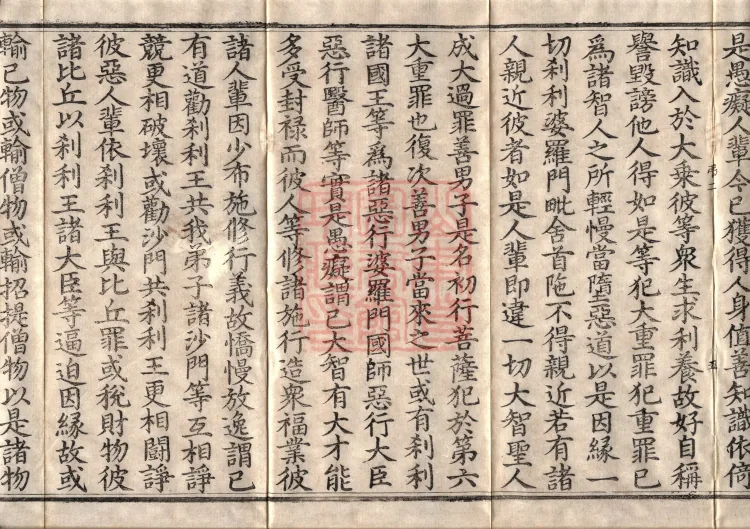 是愚癡人輩令已獲得人身值善知識依倚
知識入於大乘彼等衆生求利養故好自稱
譽毀謗他人得如是等犯大重罪犯重罪已
為諸智人之所輕慢當墮惡道以是因緣一
切刹利婆羅門毗舍首陁不得親近若有諸
人親近彼者如是人輩即違一切大智聖人
成大過罪善男子是名初行菩薩犯於第六
大重罪也復次善男子當來之世或有刹利
諸國王等爲諸惡行婆羅門國師惡行大臣
惡行醫師等實是愚癡謂己大智有大才能
多受封禄而彼人等修諸施行造衆福業彼
諸人輩因少布施修行義故憍慢放逸謂已
有道勸刹利王共我弟子諸沙門等互相諍
競更相破壞或勸沙門共刹利王更相鬪諍
彼惡人輩依刹利王與比丘罪或稅財物彼
諸比丘以刹利王諸大臣等逼迫因緣故或
輸已物或輸僧物或輸招提僧物以是諸物